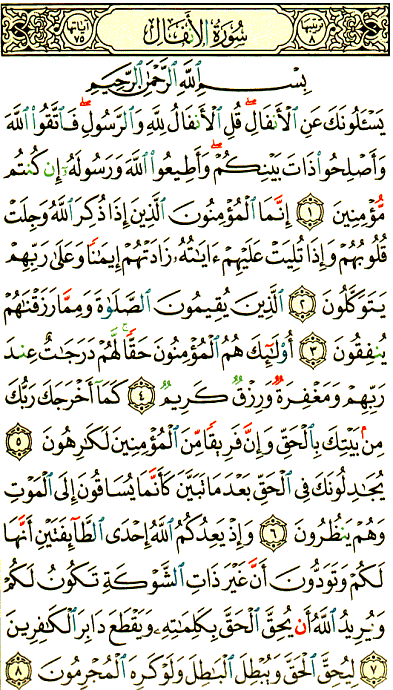 ترتيبها ٨ سُورَةُ الأَنفَالِ آياتها ٧٥
بِسْمِ اللَّهِ الرَّحْمَٰنِ الرَّحِيمِ
يَسْـَٔلُونَكَ عَنِ ٱلْأَنفَالِ ۖ قُلِ ٱلْأَنفَالُ لِلَّهِ وَٱلرَّسُولِ ۖ فَٱتَّقُوا۟ ٱللَّهَ
وَأَصْلِحُوا۟ ذَاتَ بَيْنِكُمْ ۖ وَأَطِيعُوا۟ ٱللَّهَ وَرَسُولَهُۥٓ إِن كُنتُم
مُّؤْمِنِينَ ١ إِنَّمَا ٱلْمُؤْمِنُونَ ٱلَّذِينَ إِذَا ذُكِرَ ٱللَّهُ وَجِلَتْ
قُلُوبُهُمْ وَإِذَا تُلِيَتْ عَلَيْهِمْ ءَايَٰتُهُۥ زَادَتْهُمْ إِيمَٰنًا وَعَلَىٰ رَبِّهِمْ
يَتَوَكَّلُونَ ٢ ٱلَّذِينَ يُقِيمُونَ ٱلصَّلَوٰةَ وَمِمَّا رَزَقْنَٰهُمْ
يُنفِقُونَ ٣ أُو۟لَٰٓئِكَ هُمُ ٱلْمُؤْمِنُونَ حَقًّا ۚ لَّهُمْ دَرَجَٰتٌ عِندَ
رَبِّهِمْ وَمَغْفِرَةٌ وَرِزْقٌ كَرِيمٌ ٤ كَمَآ أَخْرَجَكَ رَبُّكَ
مِنۢ بَيْتِكَ بِٱلْحَقِّ وَإِنَّ فَرِيقًا مِّنَ ٱلْمُؤْمِنِينَ لَكَٰرِهُونَ ٥
يُجَٰدِلُونَكَ فِى ٱلْحَقِّ بَعْدَ مَا تَبَيَّنَ كَأَنَّمَا يُسَاقُونَ إِلَى ٱلْمَوْتِ
وَهُمْ يَنظُرُونَ ٦ وَإِذْ يَعِدُكُمُ ٱللَّهُ إِحْدَى ٱلطَّآئِفَتَيْنِ أَنَّهَا
لَكُمْ وَتَوَدُّونَ أَنَّ غَيْرَ ذَاتِ ٱلشَّوْكَةِ تَكُونُ لَكُمْ
وَيُرِيدُ ٱللَّهُ أَن يُحِقَّ ٱلْحَقَّ بِكَلِمَٰتِهِۦ وَيَقْطَعَ دَابِرَ ٱلْكَٰفِرِينَ
٧ لِيُحِقَّ ٱلْحَقَّ وَيُبْطِلَ ٱلْبَٰطِلَ وَلَوْ كَرِهَ ٱلْمُجْرِمُونَ ٨